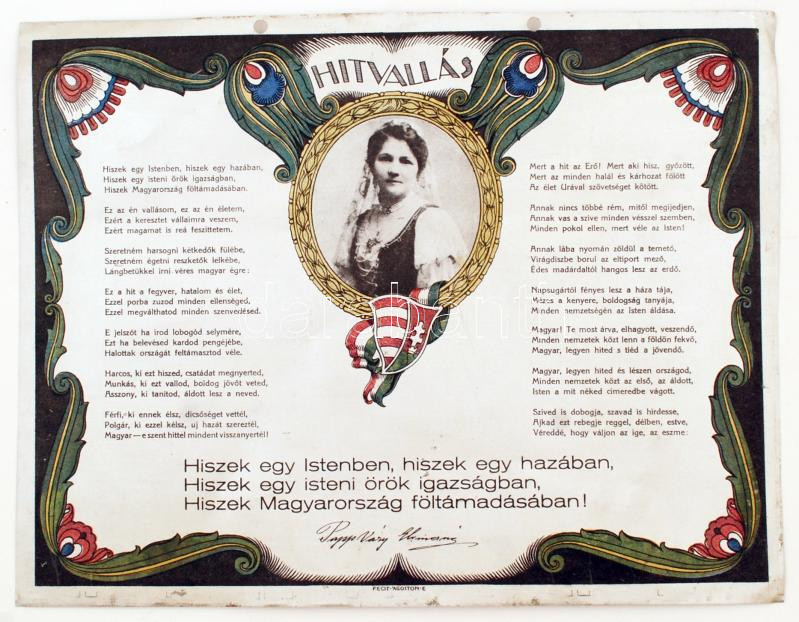 HITVALLÁS
Hiszek egy Istenben, hiszek egy hazában,
Hiszek egy isteni örök igazságban,
Hiszek Magyarország föltámadásában.
Ez az én vallásom, ez az én életem,
Ezért a keresztet vállaimra veszem,
Ezért magamat is reá feszittetem.
Szeretném harsogni kétkedők fülébe,
Szeretném égetni reszketők lelkébe,
Lángbetűkkel irni véres magyar égre:
Ez a hit a fegyver, hatalom és élet,
Ezzel porba zuzod minden ellenséged,
Ezzel megválthatod minden szenvedésed.
E jelszót ha irod lobogód selymére,
Ezt ha belevésed kardod pengéjébe,
Halottak országát feltámasztod véle.
Harcos, ki ezt hiszed, csatádat megnyerted,
Munkás, ki ezt vallod, boldog jövőt veted,
Asszony, ki tanitod, áldott lesz a neved.
Férfi, ki ennek élsz, dicsőséget vettél,
Polgár, ki ezzel kélsz, uj hazát szereztél,
Magyar — e szent hittel mindent visszanyertél!
Mert a hit az Erő! Mert aki hisz, győzött,
Mert az minden halál és kárhozat fölött
Az élet Urával szövetséget kötött.
Annak nincs többé rém, mitől megijedjen,
Annak vas a szive minden vésszel szemben,
Minden pokol ellen, mert véle az Isten!
Annak lába nyomán zöldül a temető,
Virágdiszbe borul az eltiport mező,
Édes madárdaltól hangos lesz az erdő.
Napsugártól fényes lesz a háza tája,
Mézes a kenyere, boldogság tanyája,
Minden nemzetségén az Isten áldása.
Magyar! Te most árva, elhagyott, veszendő,
Minden nemzetek közt lenn a földön fekvő,
Magyar, legyen hited s tiéd a jövendő.
Magyar, legyen hited és lészen országod,
Minden nemzetek közt az első, az áldott,
Isten a mit néked cimeredbe vágott.
Szived is dobogja, szavad is hirdesse,
Ajkad ezt rebegje reggel, délben, estve,
Véreddé, hogy váljon az ige, az eszme:
Hiszek egy Istenben, hiszek egy hazában,
Hiszek egy isteni örök igazságban,
Hiszek Magyarország föltámadásában!
Papp Váry Elemérné
FECIT-ÁGOSTON·E